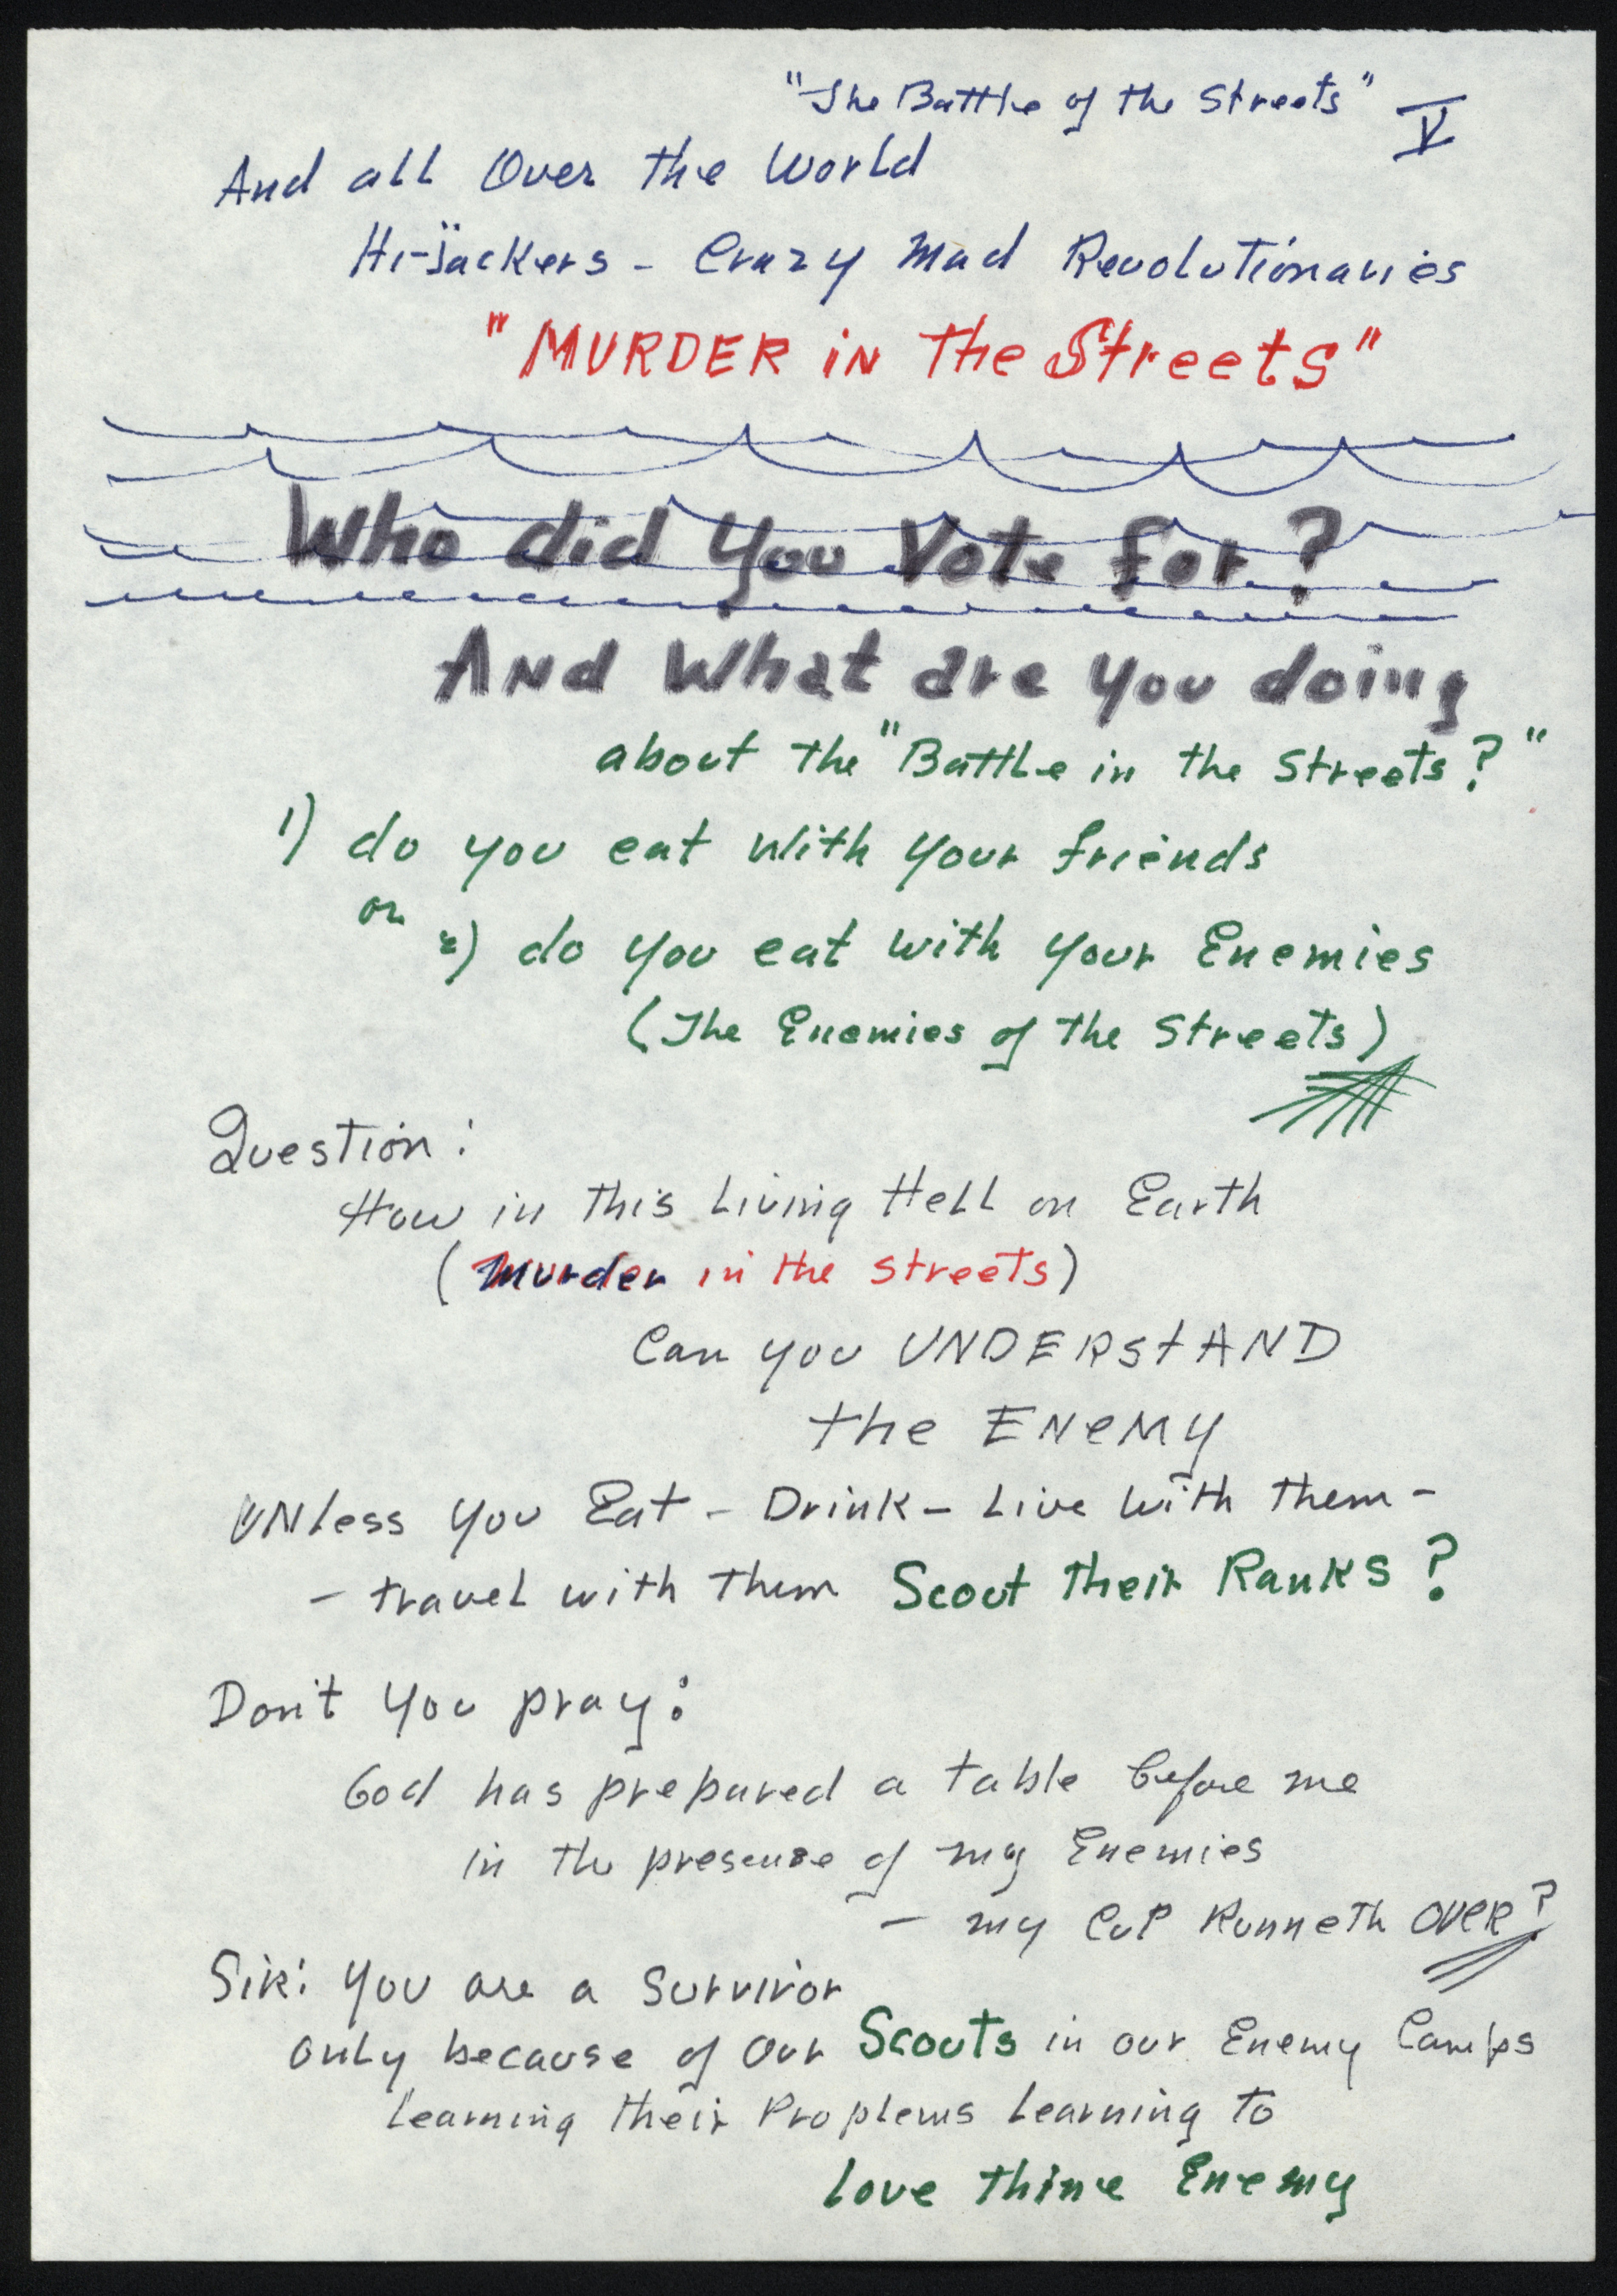 "The Battle of the Streets" V
And all Over the World
Hi-Jackers - Crazy Mad Revolutionaries
"MURDER iN The Streets"
Who did You Vote for?
ANd What are you doing
about the "Battle in the Streets?"
1) do you eat with your friends
or 2) do you eat with your Enemies
(The Enemies of the Streets)
Question:
How in this Living Hell on Earth
(Murder in the streets)
Can you UNDERStAND
the ENeMY
UNless you Eat - Drink - Live with them -
- travel with them Scout their Ranks?
Don't you pray:
God has prepared a table before me
in the presense of my Enemies
- my CuP Runneth OVER?
SiR: You are a Survivor
only because of our Scouts in our Enemy Camps
Learning their Proplems Learning to
Love thine Enemy